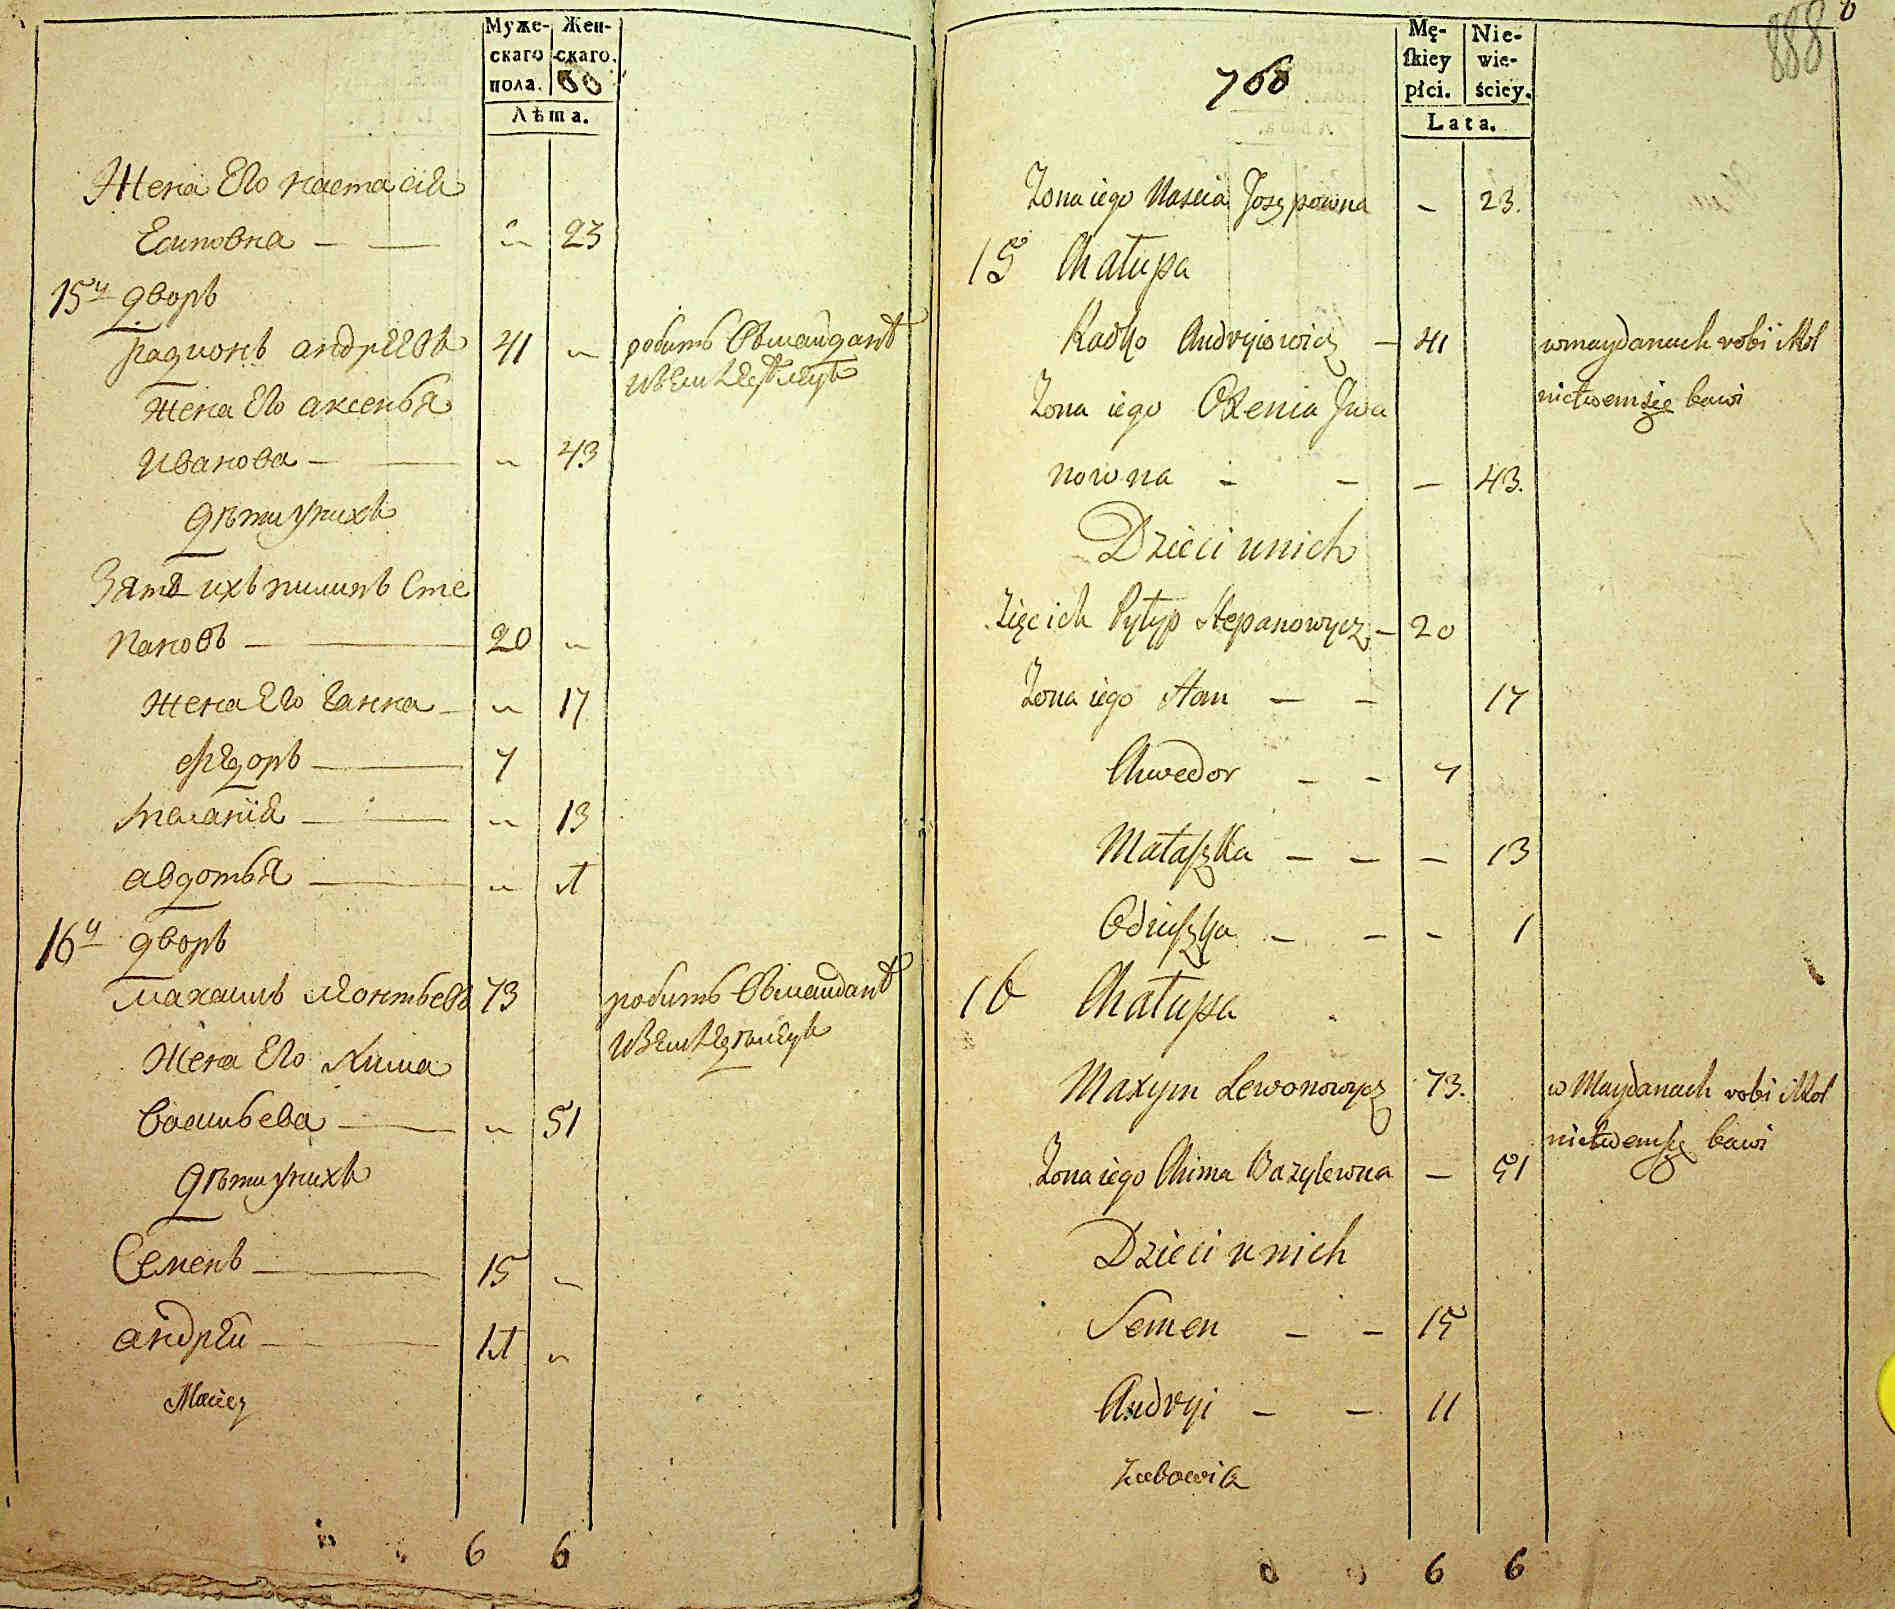 Муже-
скаго
пола.
Жен-
скаго.
Лѣта.
Жена Его настасія
Есиповна — — „ 23
15й дворъ
радионъ андрѣевъ 41 „ робитъ Вмайданѣ
Жена Его аксенья
Иванова — — „ 43
дѣти унихъ
Зять ихъ пилипъ Сте
пановъ — — 20 „
жена Его Ганна — „ 17
Фѣдоръ — 7
Маланія — — „ 13
авдотья — „ 1
16й дворъ
Махаимъ Леонтьевъ 73 робитъ Вмайданѣ
Жена Его Хима
Васильева — „ 51
дѣти унихъ
Семенъ — 15 „
андрей — 11 „
Maciey
6 6
888
760
Mę-
skiey
płci.
Nie-
wie-
ściey.
Lata.
Żona iego Nascia Jozypowna – 23.
15 Chałupa
Radko Andryiowicz – 41 w maydanach robi i Rol
nictwem się bawi
Żona iego Oxenia Jwa
nowna – – – 43.
Dzieci unich
Zięc ich Pyłyp Stepanowycz – 20
Żona iego Han – – 17
Chwedor – – 7
Małaszka – – – 13
Odiuszka – – – 1
16 Chałupa
Maxym Lewonowycz 73. w Maydanach robi i Rol
nictwem się bawi
Żona iego Chima Bazylewna – 51
Dzieci u nich
Semen – – 15
Andryi – – 11
6 6